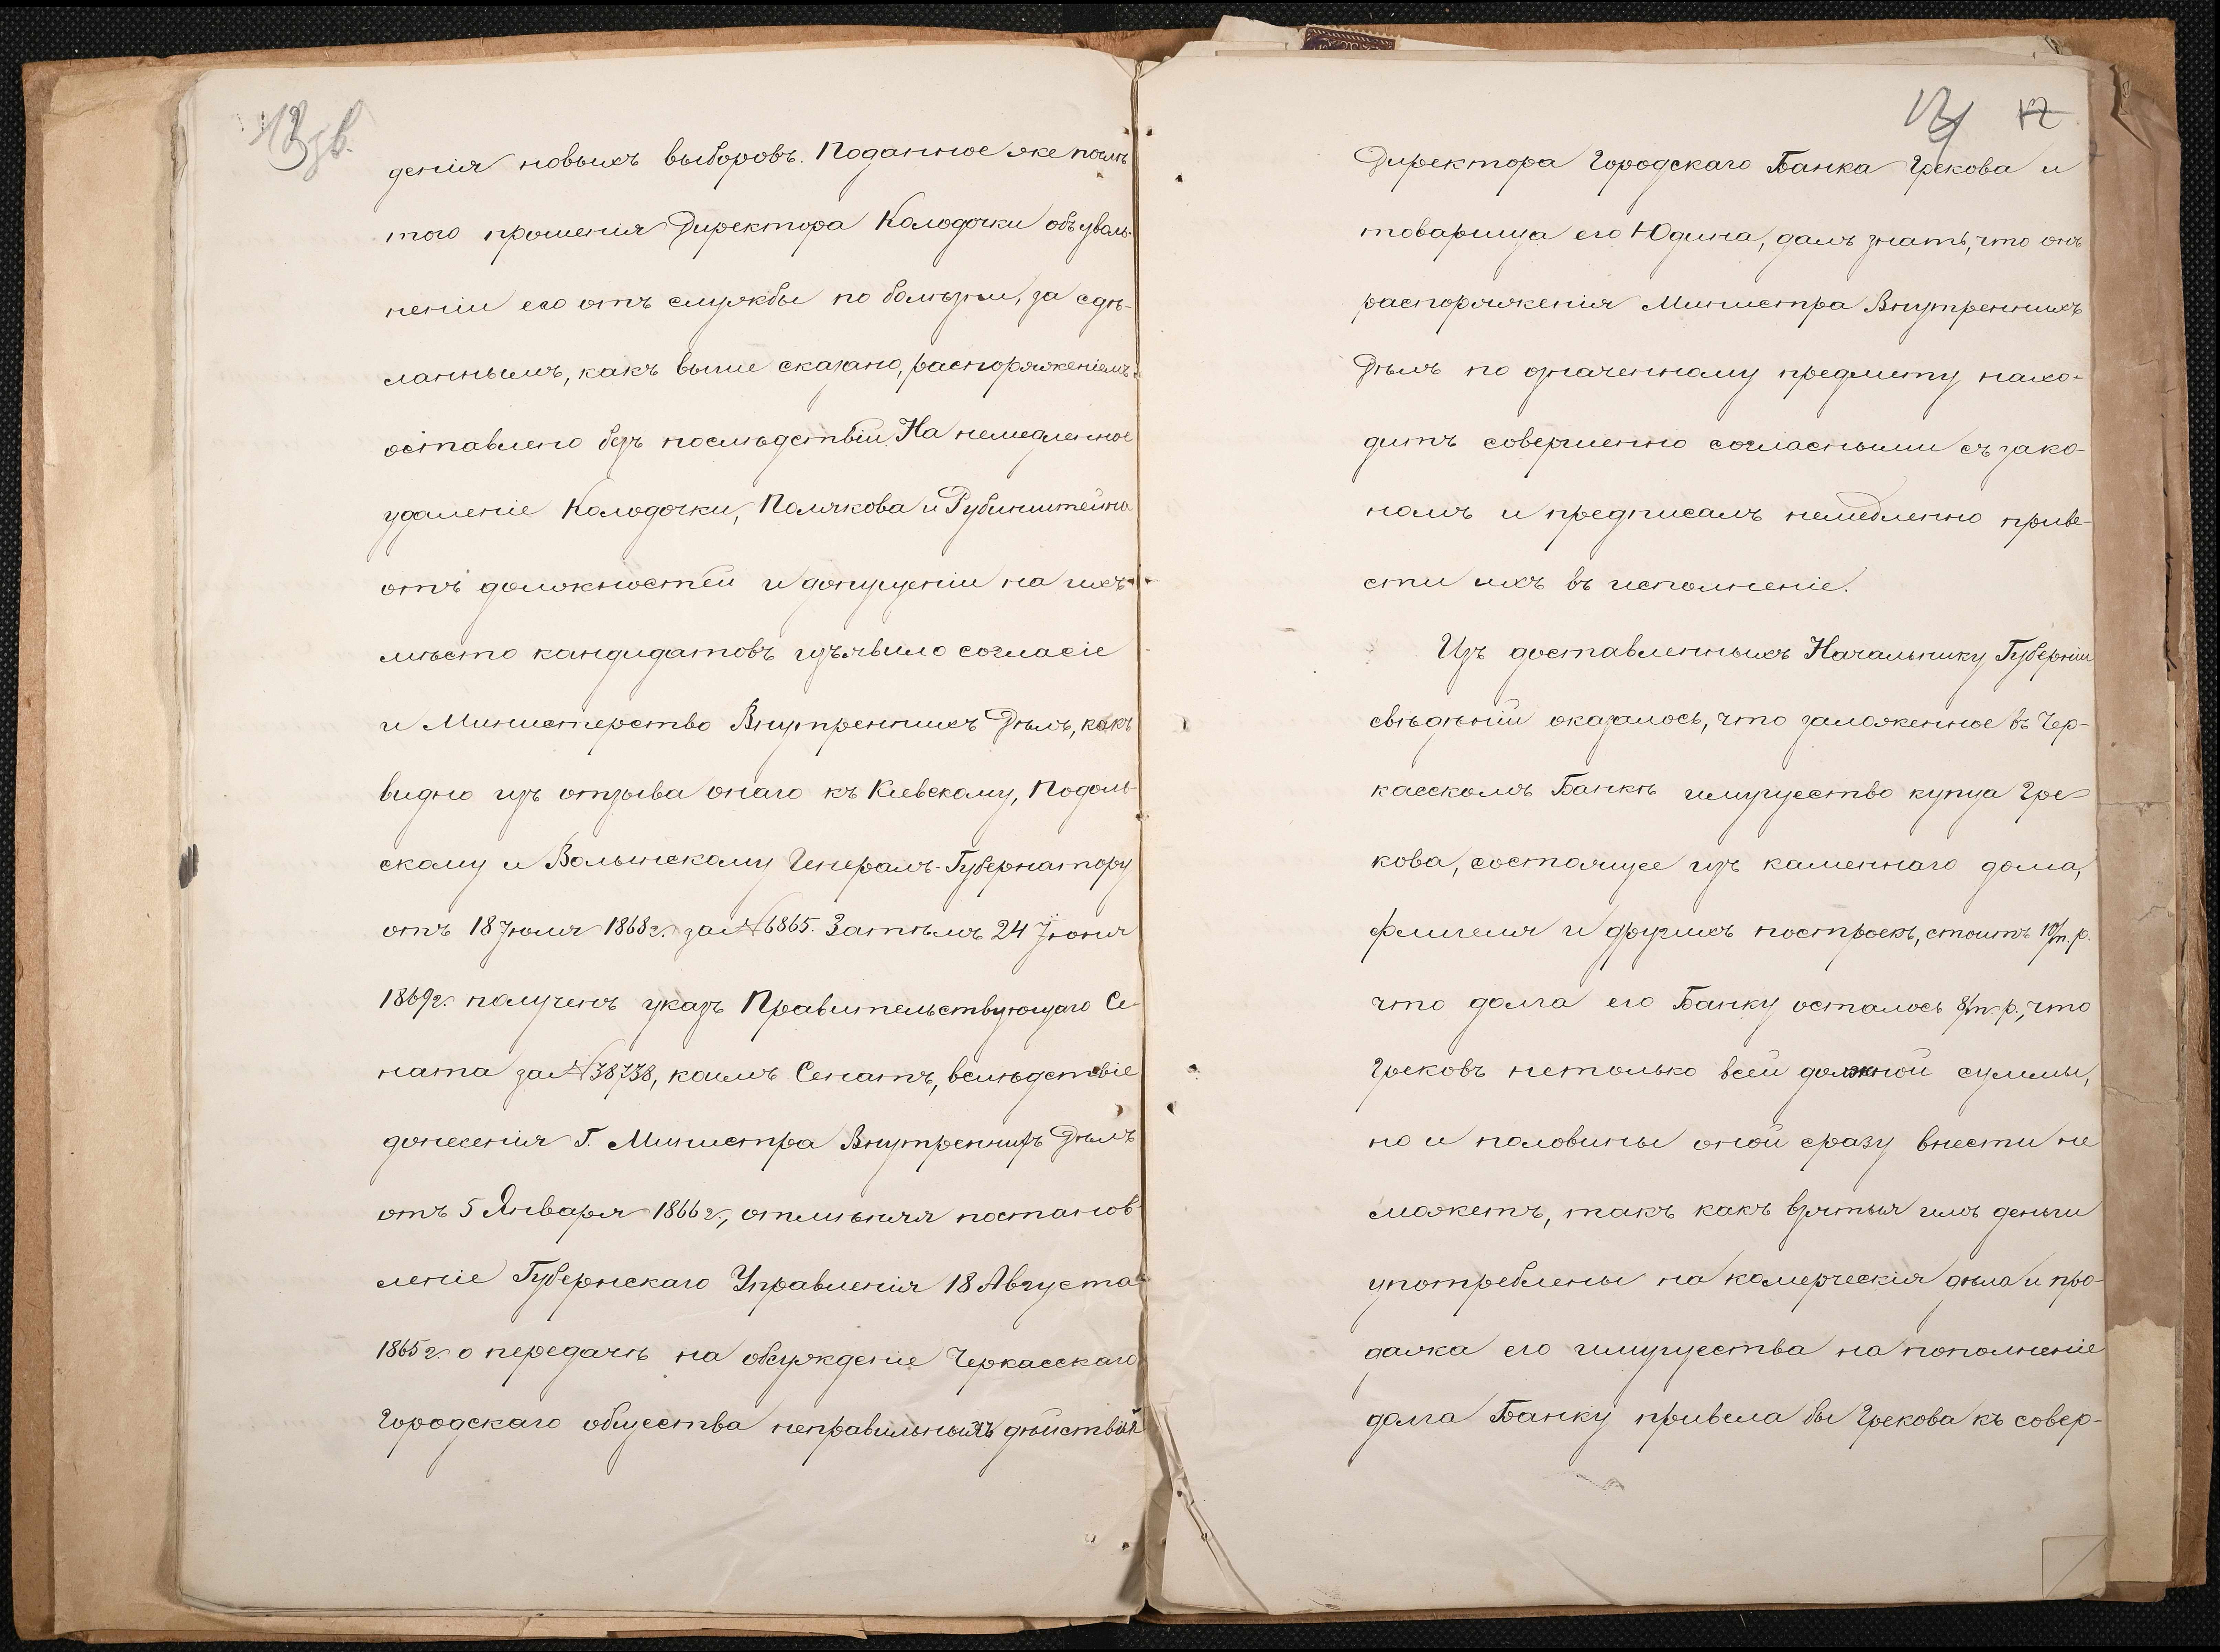 13 зв.
денія новыхъ выборовъ. Поданное же послѣ
того прошенія Директора Колодочки объ уволь-
неніи его отъ службы по болѣзни, за сдѣ-
ланнымъ, какъ выше сказано, распоряженіемъ
оставлено безъ послѣдствій. На немедленное
удаленіе Колодочки, Полякова и Рубинштейна
отъ должностей и допущеніи на ихъ
мѣсто кандидатовъ изъявило согласіе
и Министерство Внутреннихъ Дѣлъ, какъ
видно изъ отзыва онаго къ Кіевскому, Подоль-
скому и Волынскому Генералъ-Губернатору
отъ 18 Іюля 1868 г. за № 6865. Затѣмъ 24 Іюня
1869 г. полученъ указъ Правительствующаго Се-
ната за № 38738, коимъ Сенатъ, вслѣдствіе
донесенія Г. Министра Внутреннихъ Дѣлъ
отъ 5 Января 1866 г., отмѣняя постанов-
леніе Губернскаго Управленія 18 Августа
1865 г. о передачѣ на обсужденіе Черкасскаго
Городскаго общества неправильныхъ дѣйствій
12
Директора Городскаго Банка Грекова и
товарища его Юдина, далъ знать, что онъ
распоряженія Министра Внутреннихъ
Дѣлъ по означенному предмету нахо-
дитъ совершенно согласными съ зако-
номъ и предписалъ немедленно приве-
сти ихъ въ исполненіе.
Изъ доставленныхъ Начальнику Губерніи
свѣдѣній оказалось, что заложенное въ Чер-
касскомъ Банкѣ имущество купца Гре-
кова, состоящее изъ каменнаго дома,
флигеля и другихъ построекъ, стоитъ 10/т. р.
что долга его Банку осталось 8/т. р., что
Грековъ нетолько всей должной суммы,
но и половины оной сразу внести не
можетъ, такъ какъ взятыя имъ деньги
употреблены на комерческія дѣла и про-
дажа его имущества на пополненіе
долга Банку привела бы Грекова къ совер-